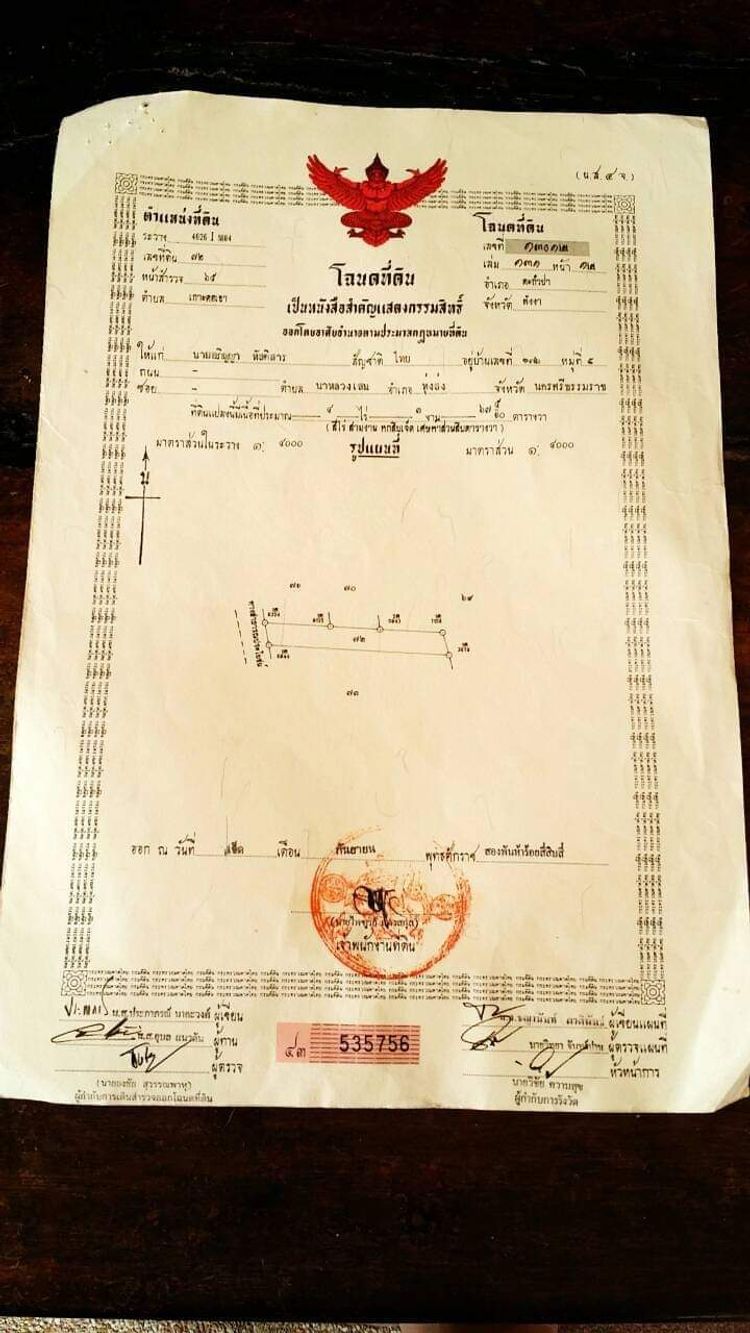 (น.ส. ๔ จ.)
ตำแหน่งที่ดิน
ระวาง 4626 I
เลขที่ดิน ๗๒
หน้าสำรวจ ๖๕
ตำบล เกาะคอเขา
โฉนดที่ดิน
เลขที่ ๑๓๐๑๒
เล่ม ๑๓๑ หน้า ๑๒
อำเภอ ตะกั่วป่า
จังหวัด พังงา
โฉนดที่ดิน
เป็นหนังสือสำคัญแสดงกรรมสิทธิ์
ออกโดยอาศัยอำนาจตามประมวลกฎหมายที่ดิน
ให้แก่ สัญชาติ ไทย อยู่บ้านเลขที่ หมู่ที่ ๕
ถนน -
ซอย - ตำบล นาหลวงเสน อำเภอ ทุ่งสง จังหวัด นครศรีธรรมราช
ที่ดินแปลงนี้มีเนื้อที่ประมาณ ๔ ไร่ ๓ งาน ตารางวา
(สี่ไร่ สามงาน หกสิบเจ็ด เศษห้าส่วนสิบตารางวา)
มาตราส่วนในระวาง ๑: ๔๐๐๐ รูปแผนที่ มาตราส่วน ๑: ๔๐๐๐
น
๗๑ ๗๐ ๖๙
๗๒
๗๓
ทางสาธารณประโยชน์
ออก ณ วันที่ เดือน กันยายน พุทธศักราช สองพันห้าร้อยสี่สิบสี่
เจ้าพนักงานที่ดิน
น.ส.ประภาภรณ์ นาคะวงค์ ผู้เขียน
น.ส.อุบล ผู้ทาน
ผู้ตรวจ
(นายธงชัย สุวรรณพาหุ)
ผู้กำกับการเดินสำรวจออกโฉนดที่ดิน
๔๓ 535756
ผู้เขียนแผนที่
นายวิทยา ผู้ตรวจแผนที่
หัวหน้าการ
นายวิชัย ความสุข
ผู้กำกับการรังวัด